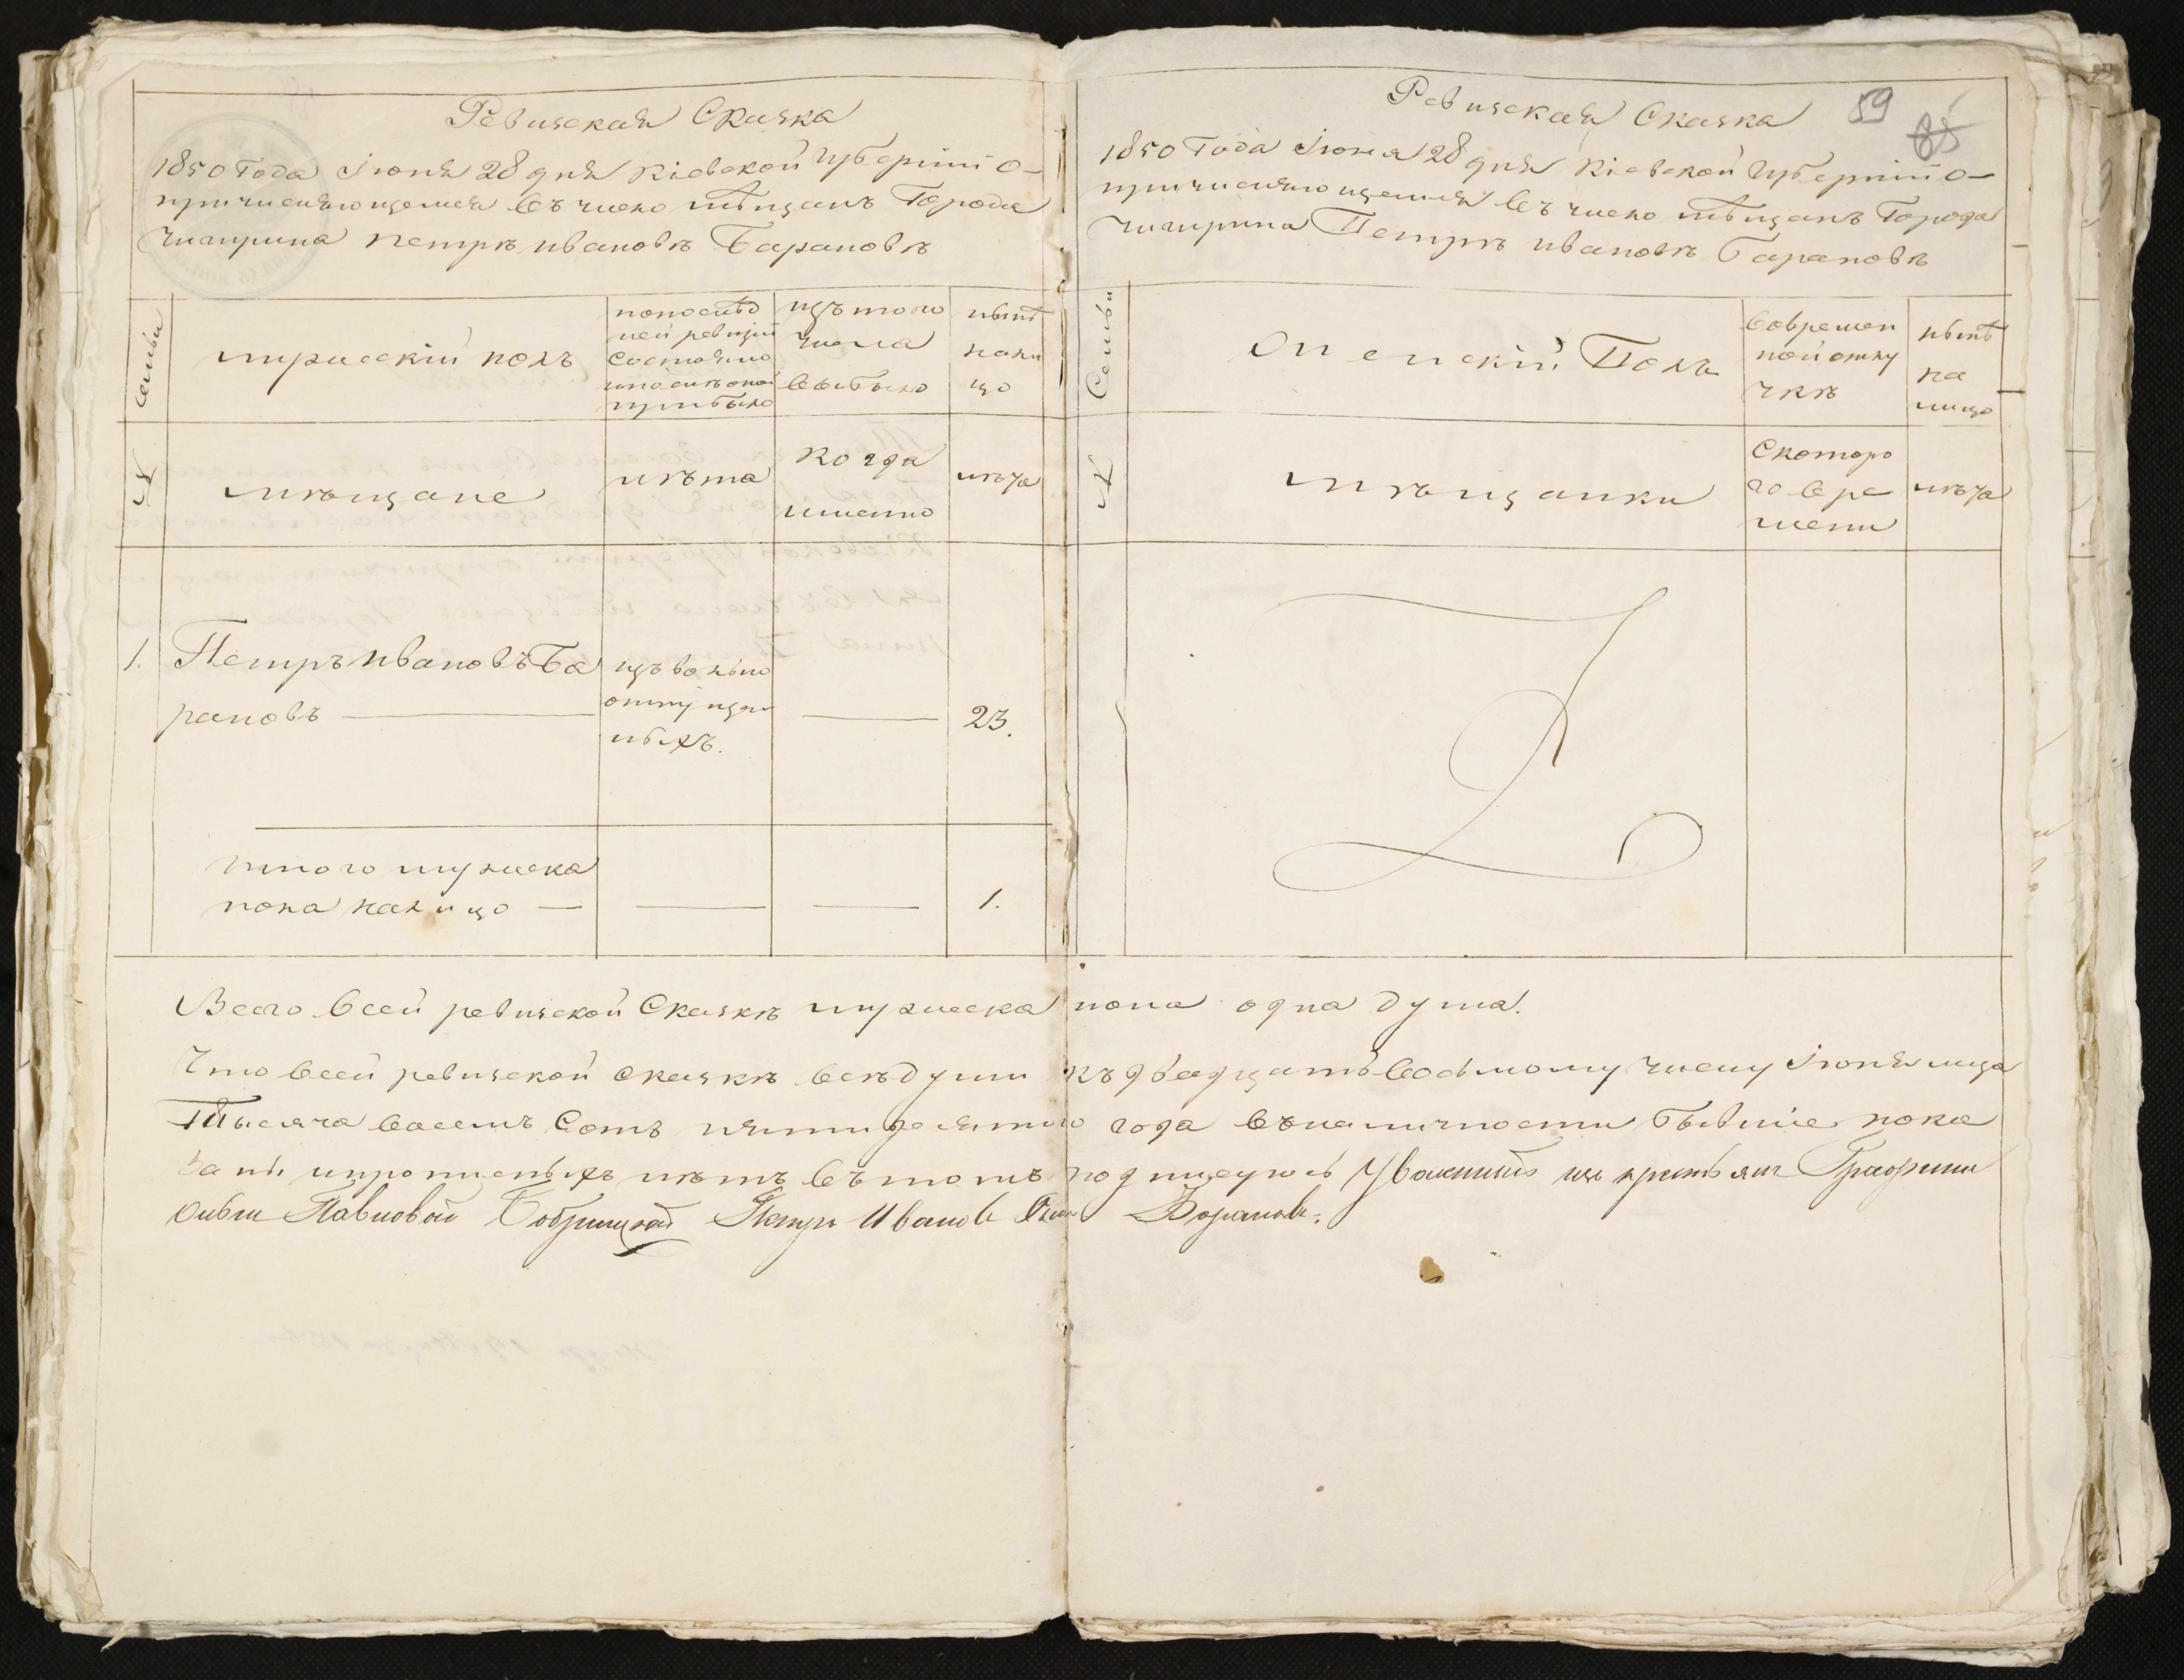 Ревизская Сказка
1850 Года Іюня 28 дня Кіевской Губерніи о
причисляющемся въ число мѣщанъ Города
Чигирина Петръ Ивановъ Барановъ
№ Семьи
мужескій полъ
по послѣд
ней ревизіи
состояло
и послѣ оной
прибыло
изъ того
числа
выбыло
нынѣ
нали
цо
мѣщане
лѣта
когда
именно
лѣта
1. Петръ Ивановъ Ба
рановъ
изъ вольно
отпущен
ныхъ.
23.
Итого мужеска
пола налицо
1.
Ревизская Сказка
59
1850 Года Іюня 28 дня Кіевской Губерніи о
причисляющемся въ число мѣщанъ Города
Чигирина Петръ Ивановъ Барановъ
№ Семьи
Женскій Полъ
Во времен
ной отлу
чкѣ
нынѣ
на
лицо
мѣщанки
С которо
го вре
мени
лѣта
Всего в сей ревизской Сказкѣ мужеска пола одна душа.
Что в сей ревизской сказкѣ всѣ души къ двадцать восьмому числу Іюня мца
Тысяча восемъ Сотъ пятидесятого года въ наличности бывшіе пока
заны и прописныхъ нѣтъ въ томъ подписуюсь Уволенный изъ крестьян Графини
Софіи Павловой Бобринской Петръ Иванов Сын Боранов.